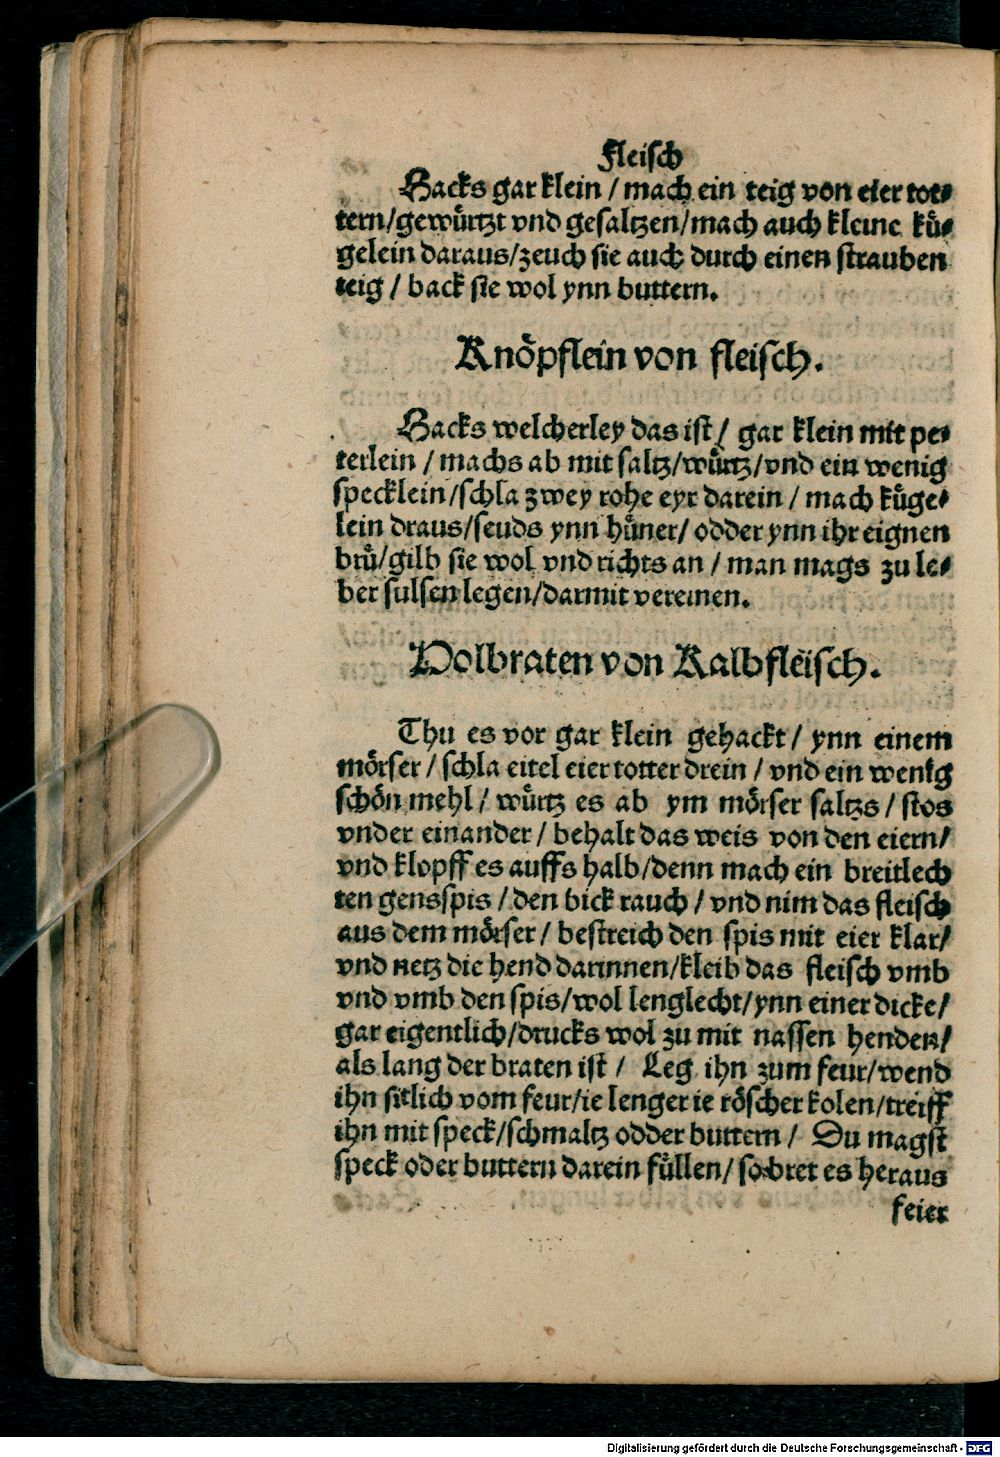 Fleisch
Hacks gar klein / mach ein teig von eier tot-
tern/gewürtzt vnd gesaltzen/mach auch kleine kü-
gelein daraus/zeuch sie auch durch einen strauben
teig / back sie wol ynn buttern.
Knöpflein von fleisch.
Hacks welcherley das ist / gar klein mit pe-
terlein / machs ab mit saltz/würtz/vnd ein wenig
specklein/schla zwey rohe eyr darein / mach küge-
lein draus/seuds ynn hüner/ odder ynn ihr eignen
brü/gilb sie wol vnd richts an / man mags zu le-
ber sulsen legen/darmit vereinen.
Holbraten von Kalbfleisch.
Thu es vor gar klein gehackt / ynn einem
mörser / schla eitel eier totter drein / vnd ein wenig
schön mehl / würtz es ab ym mörser saltzs / stos
vnder einander / behalt das weis von den eiern/
vnd klopff es auffs halb/denn mach ein breitlech
ten gensspis / den bick rauch / vnd nim das fleisch
aus dem mörser / bestreich den spis mit eier klar/
vnd netz die hend darinnen/kleib das fleisch vmb
vnd vmb den spis/wol lenglecht/ynn einer dicke/
gar eigentlich/drucks wol zu mit nassen henden/
als lang der braten ist / Leg ihn zum feur/wend
ihn sitlich vom feur/ie lenger ie röscher kolen/treiff
ihn mit speck/schmaltz odder buttern / Du magst
speck oder buttern darein füllen/ so bret es heraus
feier
Digitalisierung gefördert durch die Deutsche Forschungsgemeinschaft - DFG